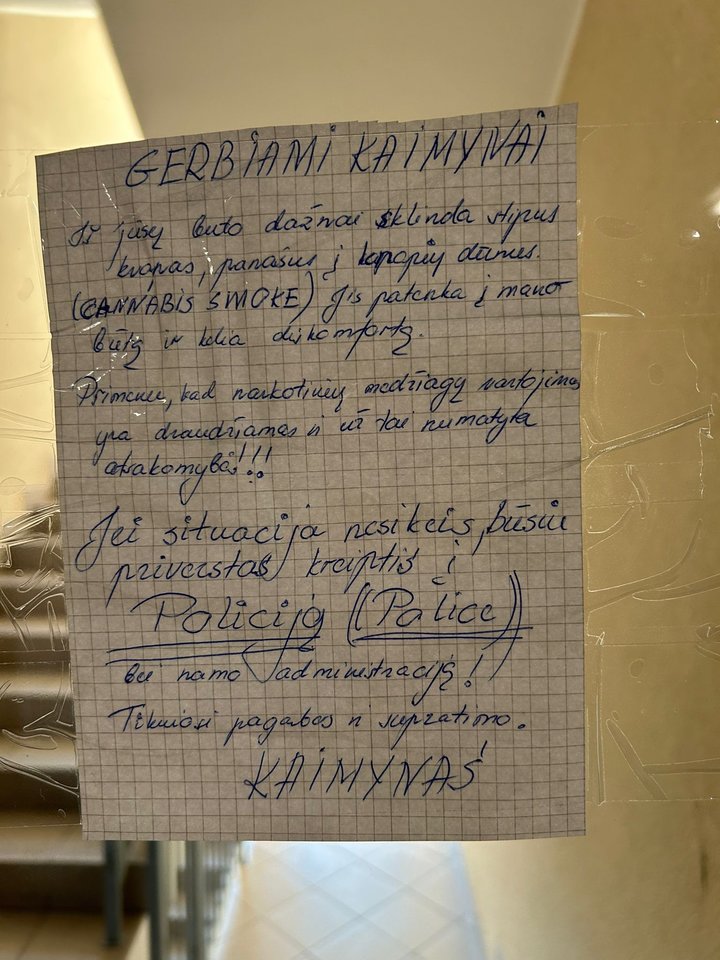 GERBIAMI KAIMYNAI
Iš jūsų buto dažnai sklinda stiprus
kvapas, panašus į kanapių dūmus.
(CANNABIS SMOKE) Jis patenka į mano
butą ir kelia diskomfortą.
Primenu, kad narkotinių medžiagų vartojimas
yra draudžiamas ir už tai numatyta
atsakomybė!!!
Jei situacija nesikeis, būsiu
priverstas kreiptis į
Policiją (Police)
bei namo administraciją!
Tikiuosi pagalbos ir supratimo.
KAIMYNAS